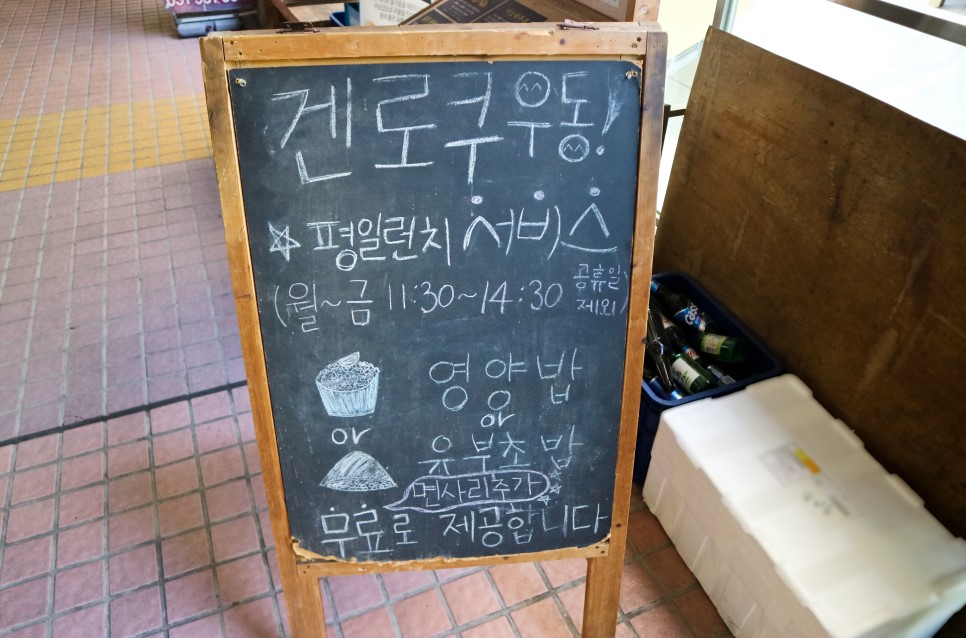 겐로쿠우동!
☆ 평일런치 서비스
(월~금 11:30~14:30 공휴일
제외)
영양밥
or
or
유부초밥
면사리추가
무료로 제공합니다